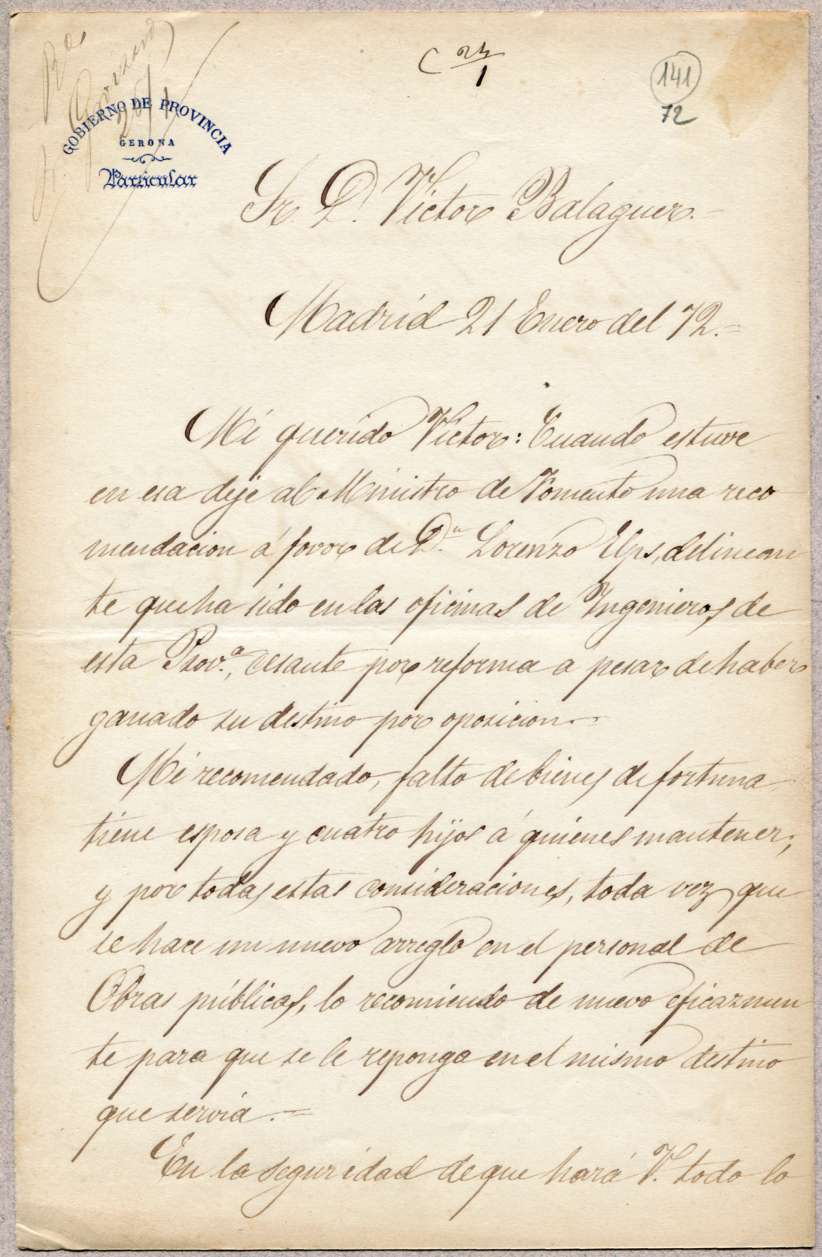 C 23/1
141
72
GOBIERNO DE PROVINCIA
GERONA
Particular
Sr. D. Victor Balaguer.=
Madrid 21 Enero del 72.=
Mi querido Victor: Cuando estuve
en esa dejé al Ministro de Fomento una reco
mendacion á favor de Dn. Lorenzo Elps, delinean
te que ha sido en las oficinas de Ingenieros de
esta Prov.a, cesante por reforma a pesar de haber
ganado su destino por oposicion.=
Mi recomendado, falto de bienes de fortuna
tiene esposa y cuatro hijos á quienes mantener;
y por todas estas consideraciones, toda vez que
se hace un nuevo arreglo en el personal de
Obras públicas, lo recomiendo de nuevo eficazmen
te para que se le reponga en el mismo destino
que servia.=
En la seguridad de que hará V. todo lo